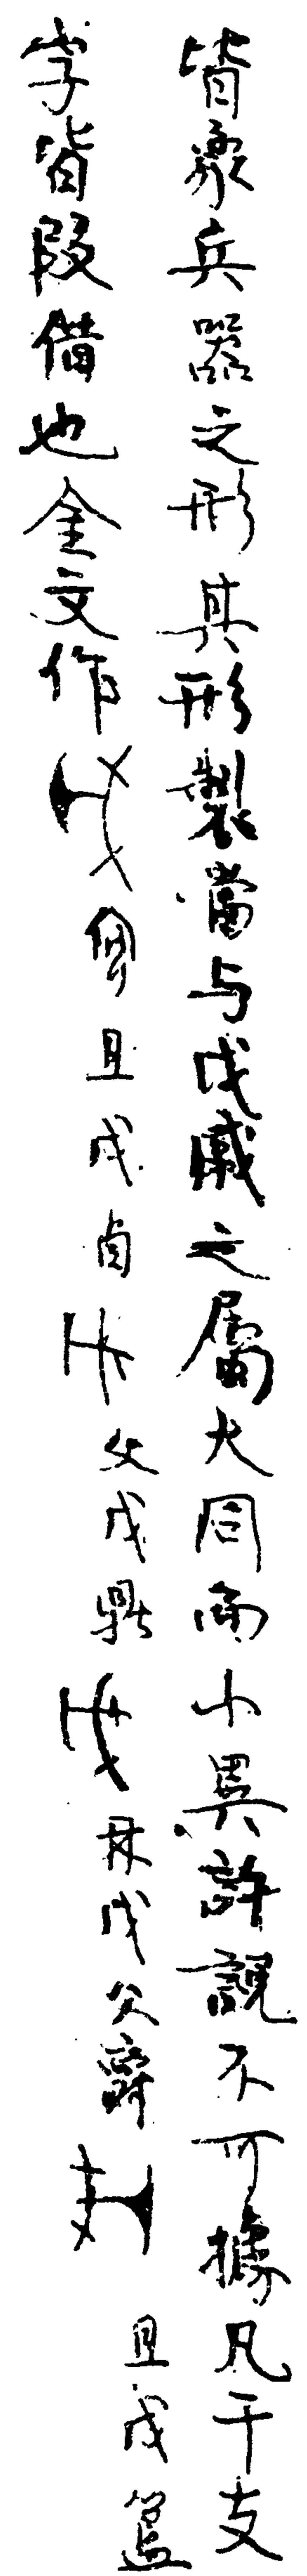 皆象兵器之形其形製當与戉戚之屬大同而小異許說不可據凡干支
字皆叚借也金文作且戊卣父戊鼎戊父爵且戊簋